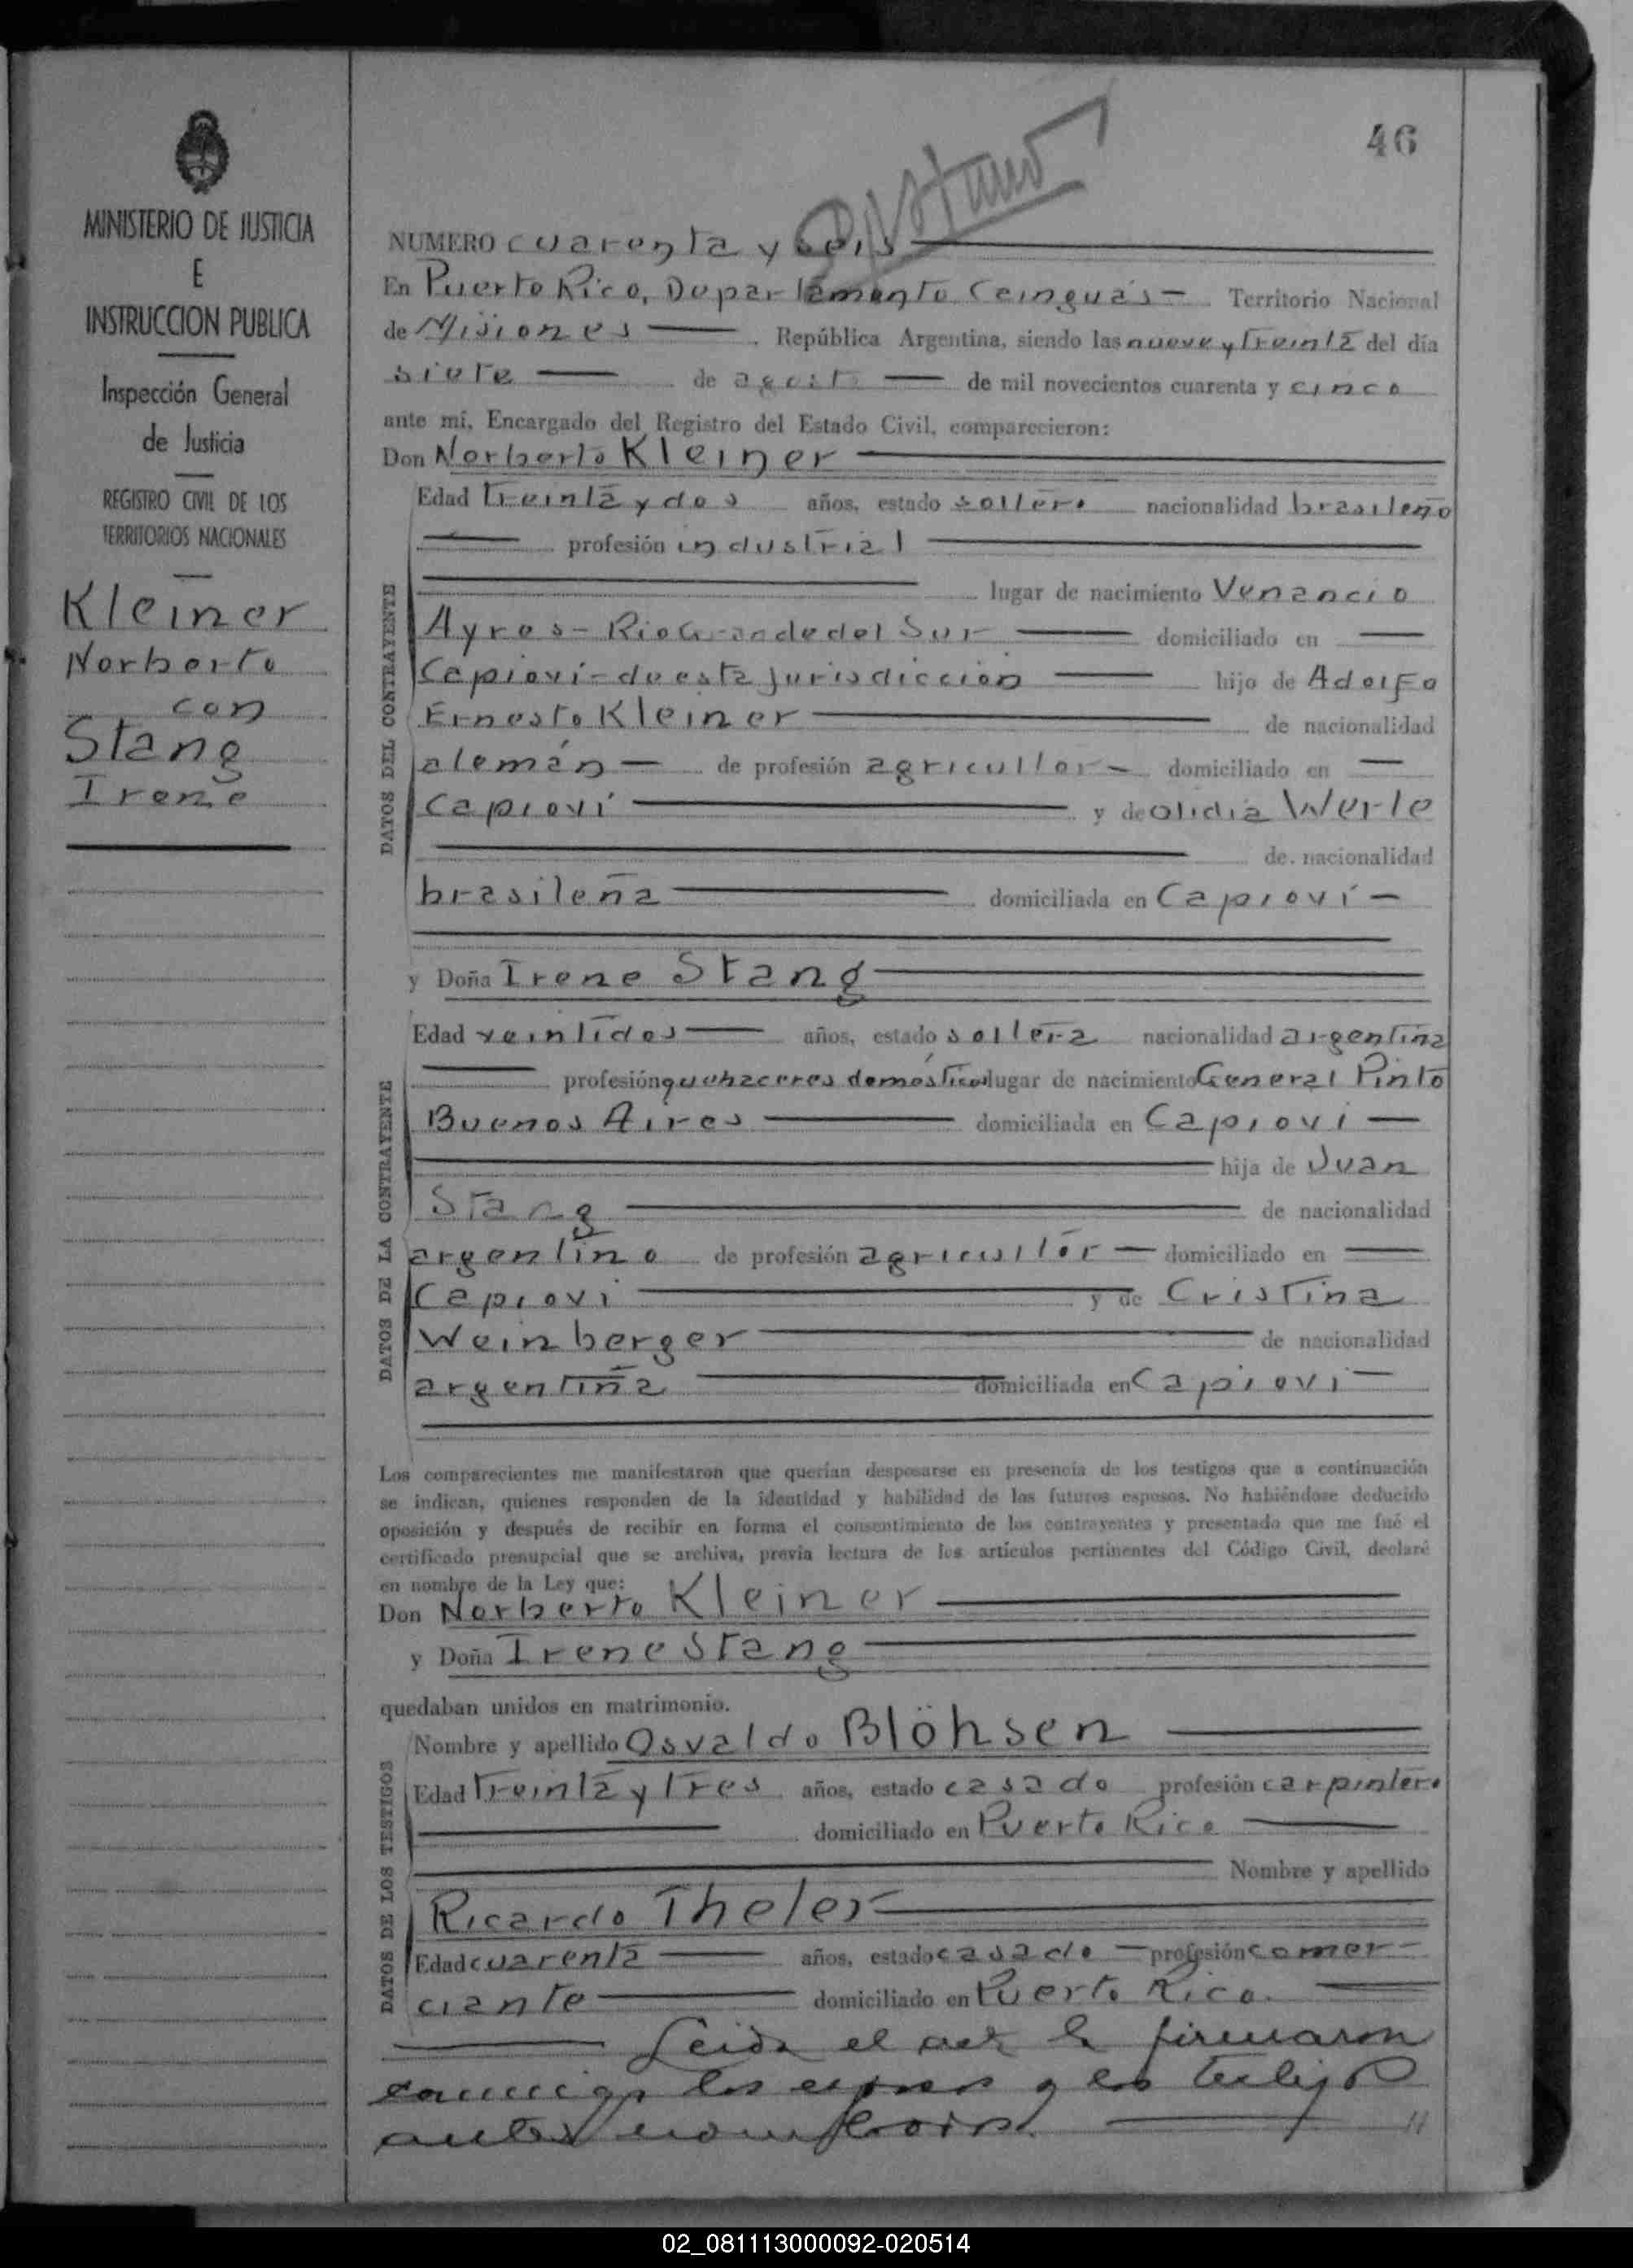 46
MINISTERIO DE JUSTICIA
E
INSTRUCCION PUBLICA
Inspección General
de Justicia
REGISTRO CIVIL DE LOS
TERRITORIOS NACIONALES
Kleiner
Norberto
con
Stang
Irene
NUMERO cuarenta y seis
En Puerto Rico, Departamento Cainguás - Territorio Nacional
de Misiones — República Argentina, siendo las nueve y treinta del día
siete — de agosto — de mil novecientos cuarenta y cinco
ante mí, Encargado del Registro del Estado Civil, comparecieron:
Don Norberto Kleiner
DATOS DEL CONTRAYENTE
Edad treinta y dos años, estado soltero nacionalidad brasileño
profesión industrial
lugar de nacimiento Venancio
Ayres - Rio Grande del Sur — domiciliado en —
Capioví - de esta jurisdicción — hijo de Adolfo
Ernesto Kleiner — de nacionalidad
alemán — de profesión agricultor - domiciliado en —
Capioví — y de Olidia Werle
de nacionalidad
brasileña — domiciliada en Capioví -
y Doña Irene Stang
DATOS DE LA CONTRAYENTE
Edad veintidos — años, estado soltera nacionalidad argentina
profesión quehaceres domésticos lugar de nacimiento General Pinto
Buenos Aires — domiciliada en Capiovi —
hija de Juan
Stang — de nacionalidad
argentino de profesión agricultor — domiciliado en —
Capiovi — y de Cristina
Weinberger — de nacionalidad
argentina — domiciliada en Capiovi -
Los comparecientes me manifestaron que querían desposarse en presencia de los testigos que a continuación
se indican, quienes responden de la identidad y habilidad de los futuros esposos. No habiéndose deducido
oposición y después de recibir en forma el consentimiento de los contrayentes y presentado que me fué el
certificado prenupcial que se archiva, previa lectura de los artículos pertinentes del Código Civil, declaré
en nombre de la Ley que:
Don Norberto Kleiner
y Doña Irene Stang
quedaban unidos en matrimonio.
DATOS DE LOS TESTIGOS
Nombre y apellido Osvaldo Blöhsen
Edad treinta y tres años, estado casado profesión carpintero
domiciliado en Puerto Rico
Nombre y apellido
Ricardo Theler
Edad cuarenta — años, estado casado — profesión comer-
ciante — domiciliado en Puerto Rico.
Leida el acta la firmaron
conmigo los esposos y los testigos
antes nombrados.
02_081113000092-020514